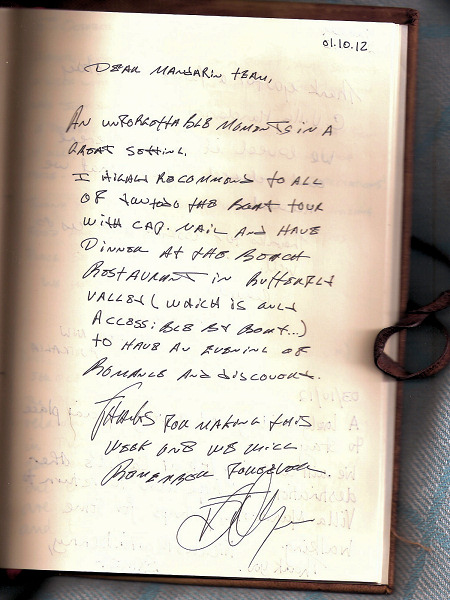 01.10.12
DEAR MANDARIN TEAM,
AN UNFORGETTABLE MOMENTS IN A
GREAT SETTING.
I HIGHLY RECOMMEND TO ALL
OF YOU TO DO THE BOAT TOUR
WITH CAP. NAIL AND HAVE
DINNER AT THE BEACH
RESTAURANT IN BUTTERFLY
VALLEY (WHICH IS ONLY
ACCESSIBLE BY BOAT...)
TO HAVE AN EVENING OF
ROMANCE AND DISCOVERY.
THANKS FOR MAKING THIS
WEEK ONE WE WILL
REMEMBER FOREVER.